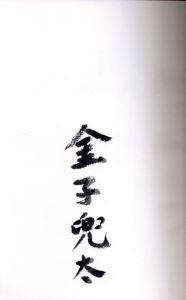 金子兜太